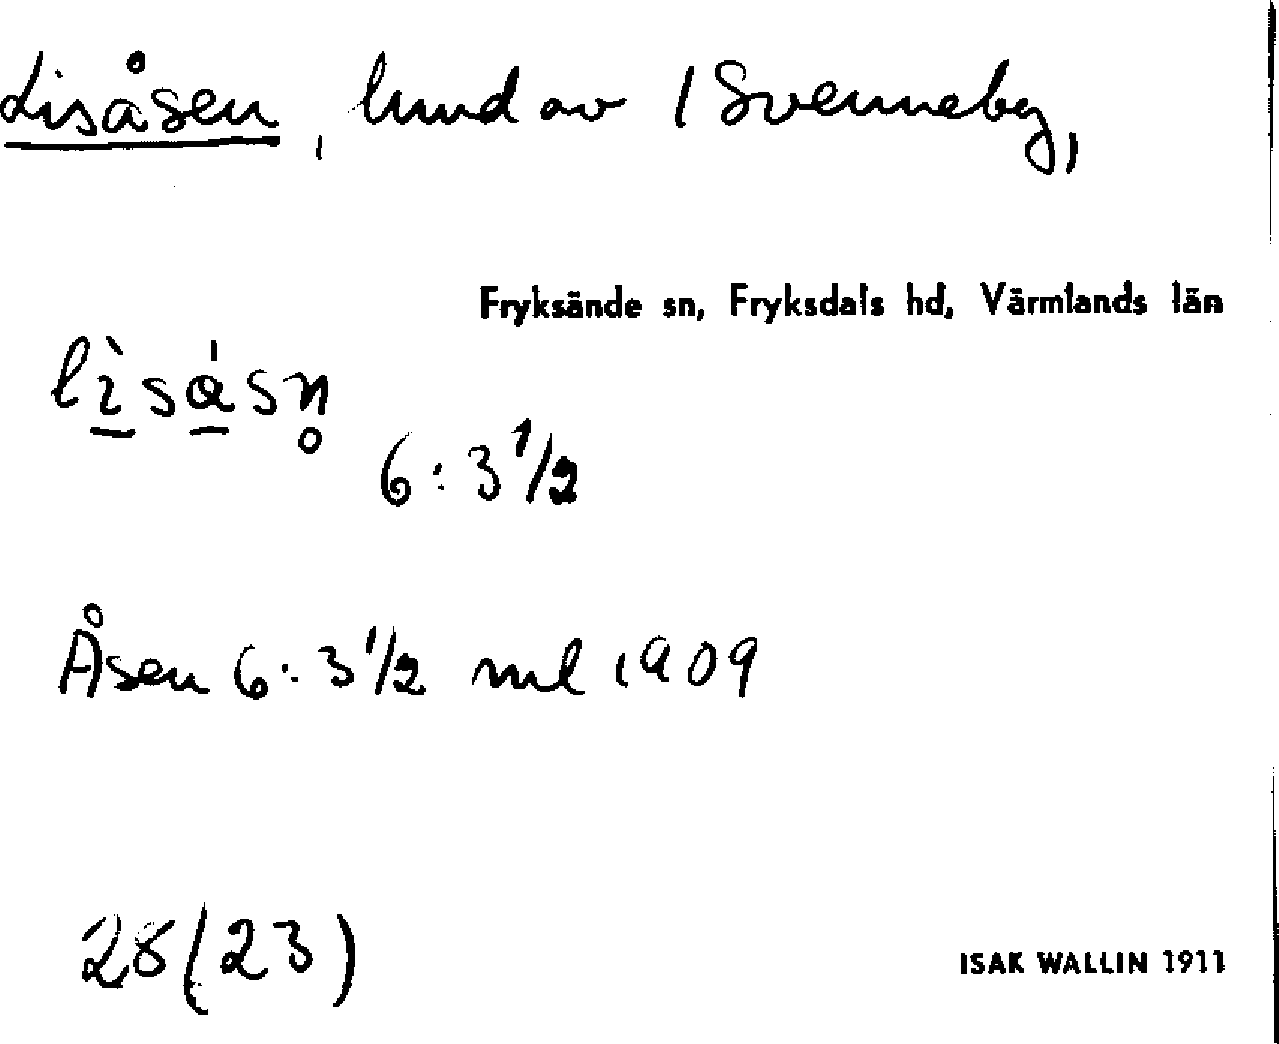 Lisåsen, hmd av 1 Svenneby,
Fryksände sn, Fryksdals hd, Värmlands län
lìsásn̥
6:3 1/2
Åsen 6:3 1/2 mtl 1909
28(23)
ISAK WALLIN 1911